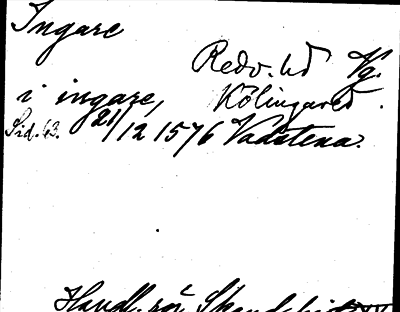 Ingare
Redv. hd Vg.
i ingare, Kölingared.
Sid. 63. 21/12 1576 Vadstena.
Handl. rör Skand. hist.